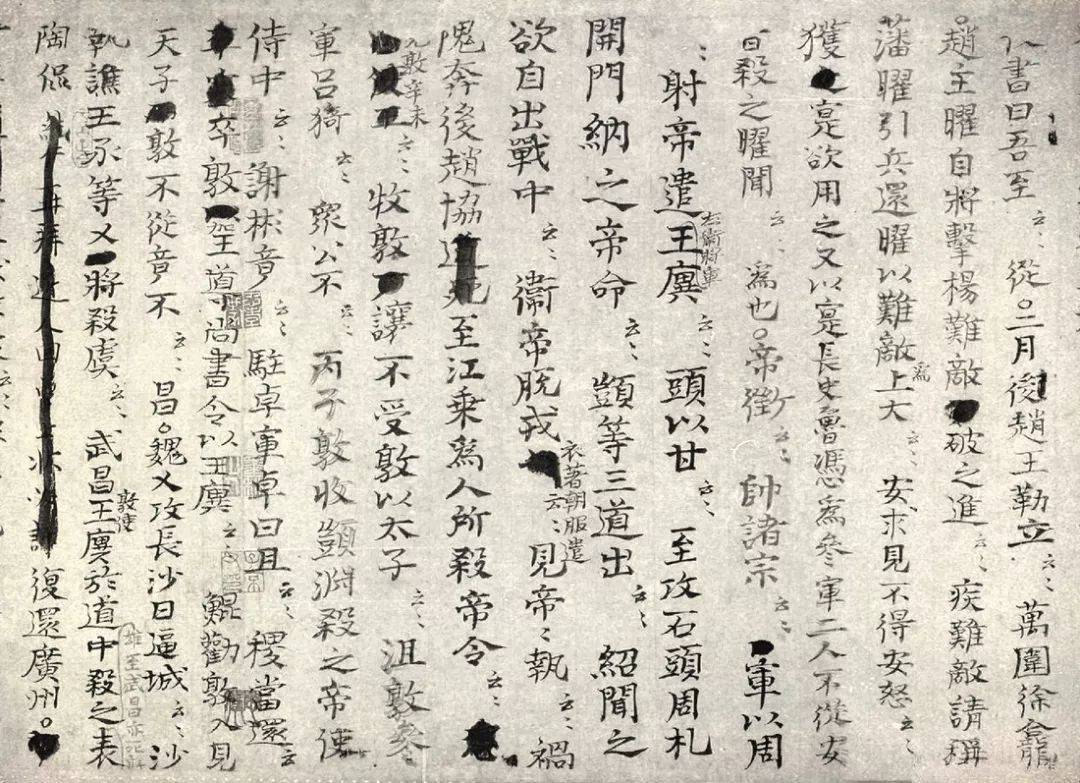 書曰吾至云〻從。二月後趙王勒立云〻萬圍徐龕
趙主曜自將擊楊難敵破之進云〻疾難敵請稱
藩曜引兵還曜以難敵為上大云〻安求見不得安怒云〻
獲之寔欲用之又以寔長史魯憑為參軍二人不從安
殺之曜聞云〻為也。帝徵云〻帥諸宗云〻軍以周
云〻射帝遣左衛將軍王廙云〻頭以甘云〻至攻石頭周札
開門納之帝命云〻顗等三道出云〻紹聞之
欲自出戰中云〻衛帝脫戎衣著朝服遣云〻見帝〻執云〻禍
隗奔後趙協道死至江乘為人所殺帝令云〻
辛未云〻牧敦讓不受敦以太子云〻沮敦參
軍呂猗云〻眾公不云〻丙子敦收顗淵殺之帝使
侍中云〻謝彬音云〻駐卓軍卓曰且云〻稷當還云
卒敦導尚書令以王廙云〻鯤勸敦入見
天子敦不從竟不云〻昌。魏乂攻長沙日逼城云〻沙
執譙王承等乂將殺虞云〻武昌敦遣王廙於道中殺之表
陶侃復還廣州。